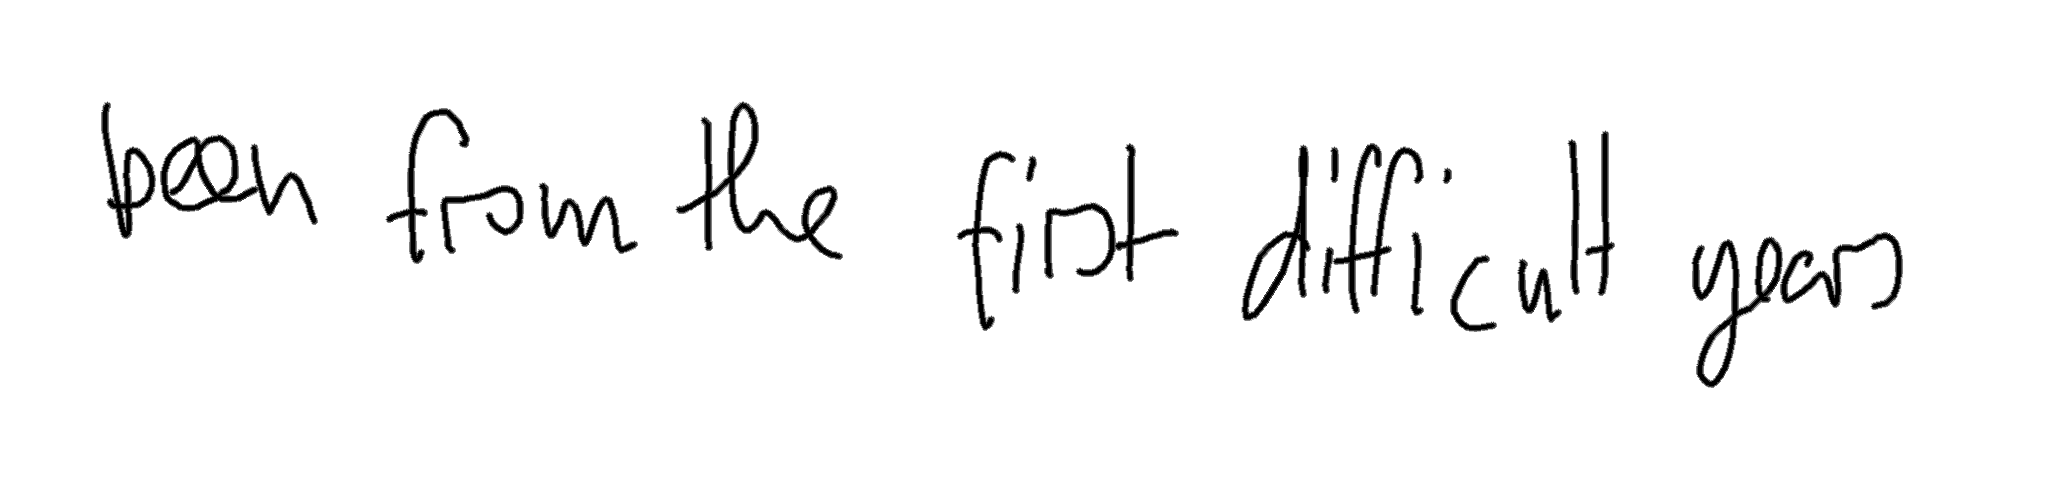 been from the first difficult years